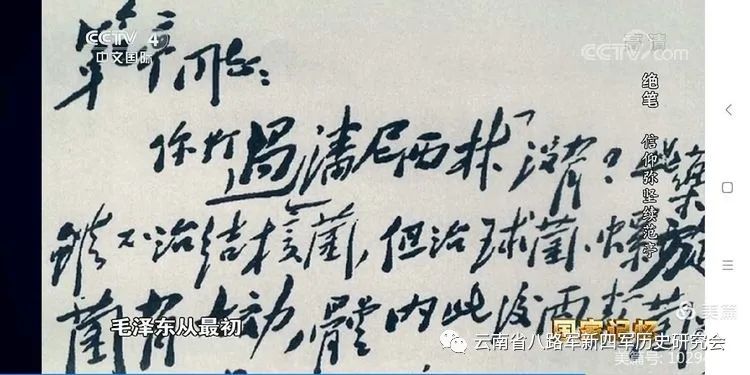 CCTV 4
中文国际
高清
CCTV.com
绝笔 信仰弥坚续范亭
亭同志：
你打過潘尼西林没有？此藥
雖不治結核菌，但治球菌、螺旋
菌有 內此
毛泽东从最初
国家记忆
美篇
云南省八路军新四军历史研究会
美篇号: 10294